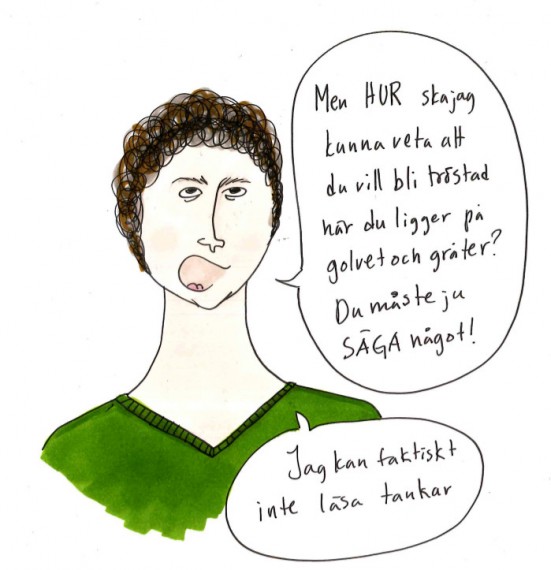 Men HUR ska jag
kunna veta att
du vill bli tröstad
när du ligger på
golvet och gråter?
Du måste ju
SÄGA något!
Jag kan faktiskt
inte läsa tankar